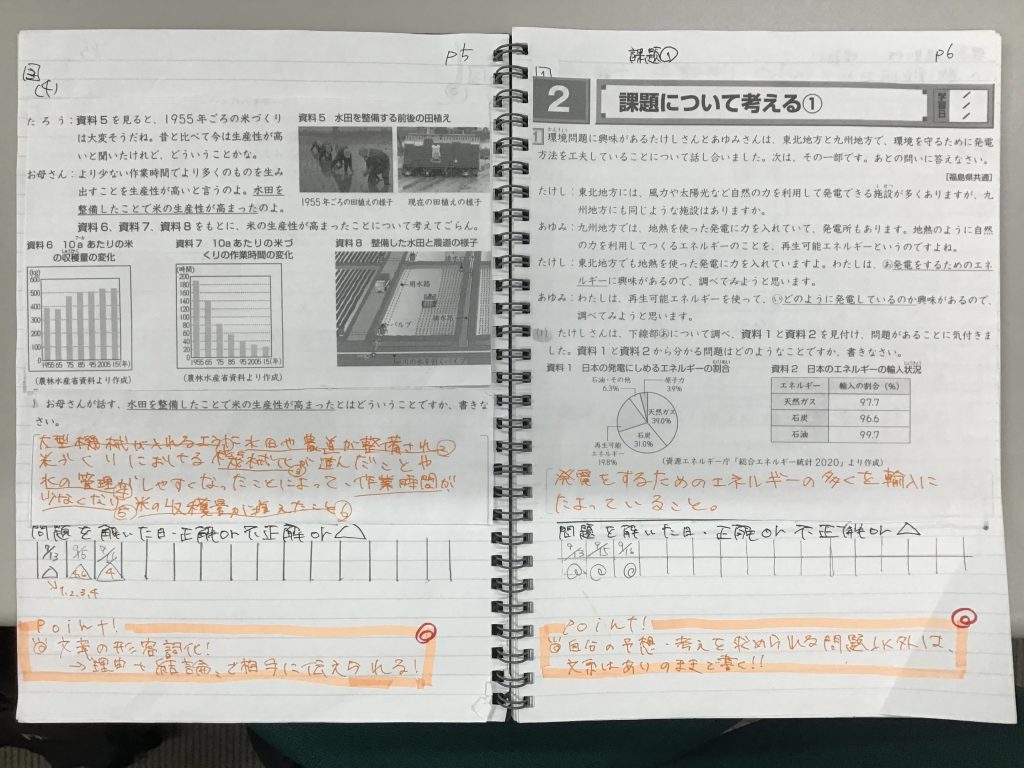 p5
3
(4)
たろう：資料5を見ると、1955年ごろの米づくり
は大変そうだね。昔と比べて今は生産性が高
いと聞いたけれど、どういうことかな。
お母さん：より少ない作業時間でより多くのものを生み
出すことを生産性が高いと言うのよ。水田を
整備したことで米の生産性が高まったのよ。
資料5 水田を整備する前後の田植え
1955年ごろの田植えの様子
現在の田植えの様子
資料6、資料7、資料8をもとに、米の生産性が高まったことについて考えてごらん。
資料6 10aあたりの米
の収穫量の変化
(kg)
600
500
400
300
200
100
0
1955 65 75 85 95 2005 15(年)
（農林水産省資料より作成）
資料7 10aあたりの米づ
くりの作業時間の変化
(時間)
200
180
160
140
120
100
80
60
40
20
0
1955 65 75 85 95 2005 15(年)
（農林水産省資料より作成）
資料8 整備した水田と農道の様子
用水路
排水路
バルブ
お母さんが話す、水田を整備したことで米の生産性が高まったとはどういうことですか、書きな
さい。
大型機械が入れるように水田や農道が整備され
米づくりにおける機械化が進んだことや
水の管理がしやすくなったことによって、作業時間が
少なくなり米の収穫量が増えたこと
問題を解いた日・正解or不正解or△
9/13 9/15 9/16
1,2,3,4
point!
文章の形容詞化!
→理由→結論、で相手に伝えられる!
課題①
p6
1
2 課題について考える①
学習日
1 環境問題に興味があるたけしさんとあゆみさんは、東北地方と九州地方で、環境を守るために発電
方法を工夫していることについて話し合いました。次は、その一部です。あとの問いに答えなさい。
[福島県共通]
たけし：東北地方には、風力や太陽光など自然の力を利用して発電できる施設が多くありますが、九
州地方にも同じような施設はありますか。
あゆみ：九州地方では、地熱を使った発電に力を入れていて、発電所もあります。地熱のように自然
の力を利用してつくるエネルギーのことを、再生可能エネルギーというのですよね。
たけし：東北地方でも地熱を使った発電に力を入れていますよ。わたしは、あ発電をするためのエネ
ルギーに興味があるので、調べてみようと思います。
あゆみ：わたしは、再生可能エネルギーを使って、いどのように発電しているのか興味があるので、
調べてみようと思います。
(1) たけしさんは、下線部あについて調べ、資料1と資料2を見付け、問題があることに気付きま
した。資料1と資料2から分かる問題はどのようなことですか、書きなさい。
資料1 日本の発電にしめるエネルギーの割合
石油・その他
6.3%
原子力
3.9%
天然ガス
39.0%
石炭
31.0%
再生可能
エネルギー
19.8%
資料2 日本のエネルギーの輸入状況
エネルギー 輸入の割合（%）
天然ガス 97.7
石炭 96.6
石油 99.7
（資源エネルギー庁「総合エネルギー統計2020」より作成）
発電をするためのエネルギーの多くを輸入に
たよっていること。
問題を解いた日・正解or不正解or△
9/13 9/15 9/16
point!
自分の予想・考えを求められる問題以外は、
文末はありのままで書く!!